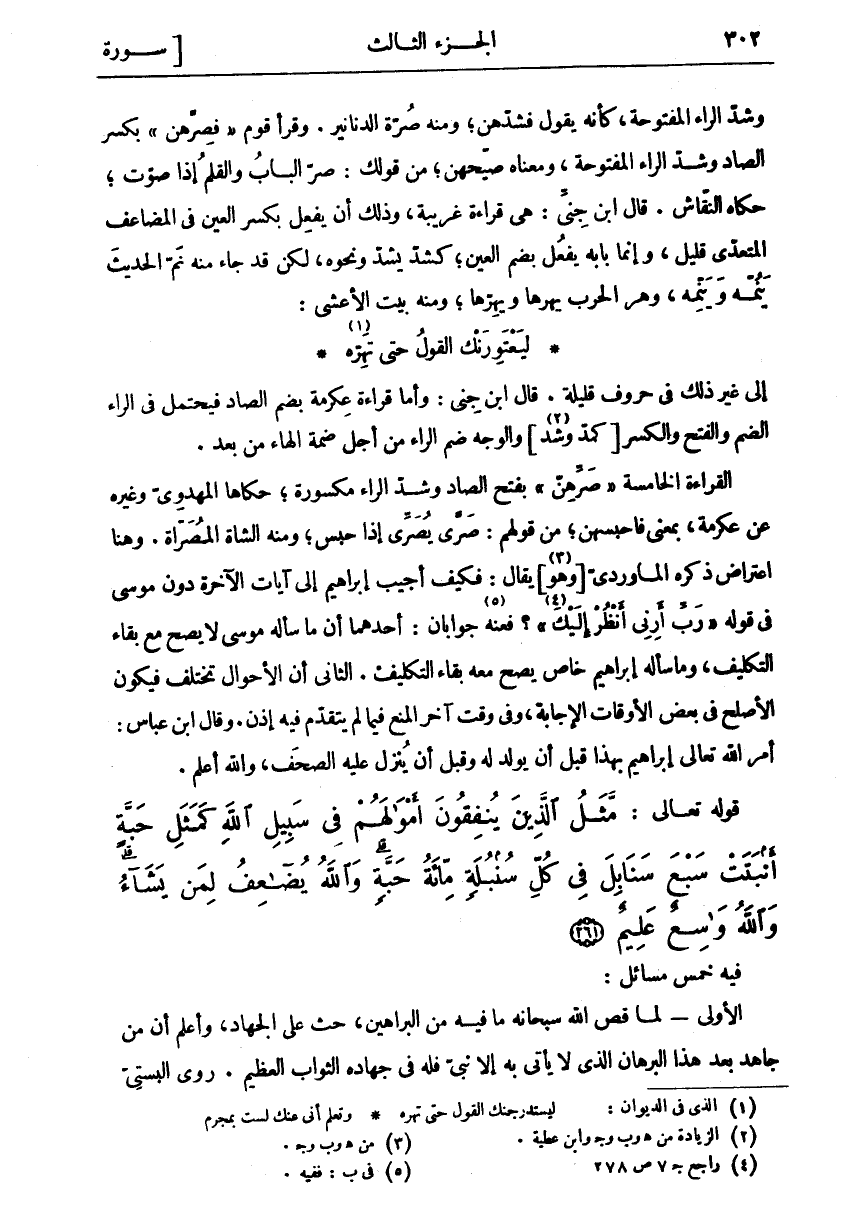 ٣٠٢ الجـــزء الثالث [ ســـورة
وشدّ الراء المفتوحة، كأنه يقول فشدّهن؛ ومنه صُرّة الدنانير . وقرأ قوم « فصِرّهن » بكسر
الصاد وشــدّ الراء المفتوحة ، ومعناه صيّحهن؛ من قولك : صرّ البــابُ والقلمُ إذا صوّت ؛
حكاه النقّاش . قال ابن جِنىّ : هى قراءة غريبة، وذلك أن يفعِل بكسر العين فى المضاعف
المتعدّى قليل ، وإنما بابه يفعُل بضم العين؛ كشدّ يشدّ ونحوه، لكن قد جاء منه نَمّ الحديثَ
يَنُمّــه وَيَنِمّه ، وهر الحرب يهرها ويهِرّها ؛ ومنه بيت الأعشى :
* لَيَعْتَوِرَنْك القولُ حتى تَهِرّه (١) *
إلى غير ذلك فى حروف قليلة . قال ابن جِنى : وأما قراءة عِكرمة بضم الصاد فيحتمل فى الراء
الضم والفتح والكسر [ كمدّ وشدّ ] (٢) والوجه ضم الراء من أجل ضمة الهاء من بعد .
القراءة الخامسة « صَرِّهِنّ » بفتح الصاد وشــدّ الراء مكسورة ؛ حكاها المهدوىّ وغيره
عن عكرمة، بمعنى فاحبسهن؛ من قولهم : صَرَّى يُصَرِّى إذا حبس؛ ومنه الشاة المُصَرّاة . وهنا
اعتراض ذكره المــاوردىّ [وهو] (٣) يقال : فكيف أجيب إبراهيم إلى آيات الآخرة دون موسى
فى قوله « رَبِّ أَرِنِى أَنْظُرْ إِلَيْكَ (٤) » ؟ فعنه (٥) جوابان : أحدهما أن ما سأله موسى لا يصح مع بقاء
التكليف، وما سأله إبراهيم خاص يصح معه بقاء التكليف . الثانى أن الأحوال تختلف فيكون
الأصلح فى بعض الأوقات الإجابة، وفى وقت آخر المنع فيما لم يتقدّم فيه إذن. وقال ابن عباس :
أمر الله تعالى إبراهيم بهذا قبل أن يولد له وقبل أن يُنزل عليه الصحَف، والله أعلم .
قوله تعــالى : مَّثَــلُ ٱلَّذِينَ يُنفِقُونَ أَمْوَٰلَهُــمْ فِى سَبِيلِ ٱللَّهِ كَمَثَلِ حَبَّةٍ
أَنۢبَتَتْ سَبْعَ سَنَابِلَ فِى كُلِّ سُنۢبُلَةٍ مِّاْئَةُ حَبَّةٍ ۗ وَٱللَّهُ يُضَٰعِفُ لِمَن يَشَآءُ ۗ
وَٱللَّهُ وَٰسِعٌ عَلِيمٌ ۝٢٦١
فيه خمس مسائل :
الأولى — لمــا قص الله سبحانه ما فيــه من البراهين، حث على الجهاد، وأعلم أن من
جاهد بعد هذا البرهان الذى لا يأتى به إلا نبىّ فله فى جهاده الثواب العظيم . روى البستىّ
(١) الذى فى الديوان : ليستدرجنك القول حتى تهره * وتعلم أنى عنك لست بمجرم
(٢) الزيادة من ه وب وجـ وابن عطية . (٣) من ه وب وجـ .
(٤) راجع جـ ٧ ص ٢٧٨ (٥) فى ب : ففيه .